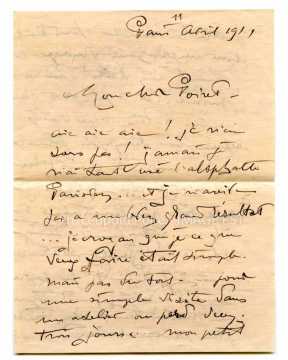 Paris 11 Avril 1911
Mon cher Poiret -
aie aie aie ! je n'en
sors pas ! jamais je
n'ai tant usé l'alsphalte
Parisien ... et je n'arrive
pas a un bien grand résultat
... je croyais que ce que
veux faire était simple.
mais pas du tout - pour
une simple visite dans
un atelier on perd deux
trois jours - mon petit